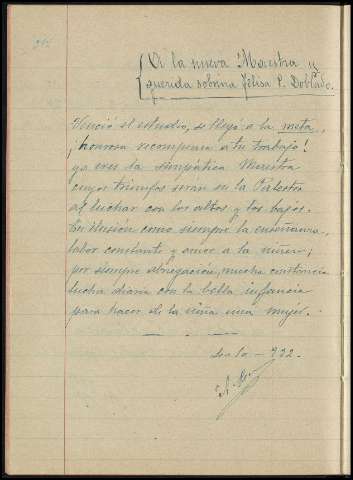 A la nueva Maestra y
querida sobrina Felisa P. Doblado.
Venció el estudio, se llegó a la meta,
¡honrosa recompensa a tu trabajo!
ya eres la simpática Maestra
cuyos triunfos serán en la Palestra
al luchar con los altos y los bajos.
Tu ilusión como siempre la enseñanza,
labor constante y amor a la niñez;
por siempre abnegación, mucha constancia
lucha diaria con la bella infancia
para hacer de la niña una mujer.
932.